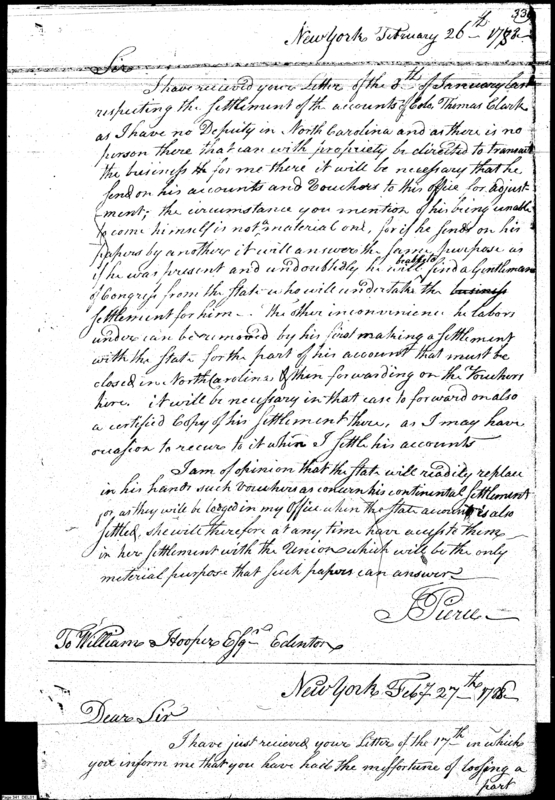 33
New York February 26th 178
Sir
I have received your Letter of the 3th of January last
respecting the settlement of the accounts of Colo. Thomas Clark
as I have no Deputy in North Carolina and as there is no
person there that can with propriety be directed to transact
the business for me there it will be necessary that he
send on his accounts and Vouchers to this office for adjust-
ment; the circumstance you mention of his being unable
to come himself is not a material one, for if he sends on his
papers by another it will answer the same purpose as
if he was present and undoubtedly he will be able to find a Gentleman
of Congress from the State who will undertake the business
settlement for him. The other inconvenience he labors
under can be removed by his first making a settlement
with the State for the part of his account that must be
closed in North Carolina & then forwarding on the Vouchers
here. it will be necessary in that case to forward on also
a certified Copy of his settlement there, as I may have
occasion to recur to it when I settle his accounts
I am of opinion that the State will readily replace
in his hands such Vouchers as concern his continental settlement
for, as they will be lodged in my Office when the State account is also
settled, she will therefore at any time have access to them
in her settlement with the Union which will be the only
material purpose that such papers can answer
J Pierce
To William Hooper Esqr. Edenton
New York Feby. 27th 178
Dear Sir
I have just recieved your Letter of the 17th in which
you inform me that you have had the misfortune of loosing a
part
Page 341